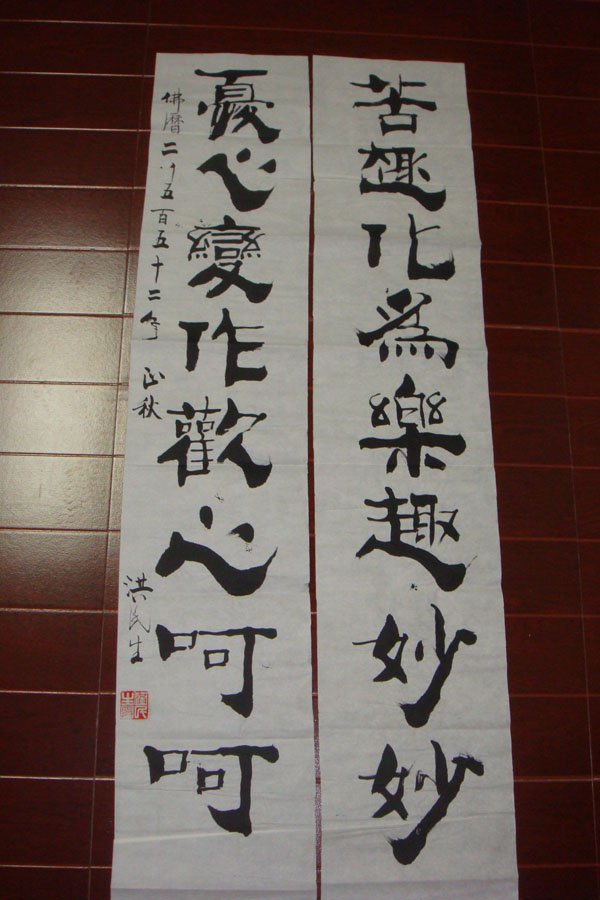 苦趣化為樂趣妙妙
憂心變作歡心呵呵
佛曆二千五百五十二年 正秋
洪民生